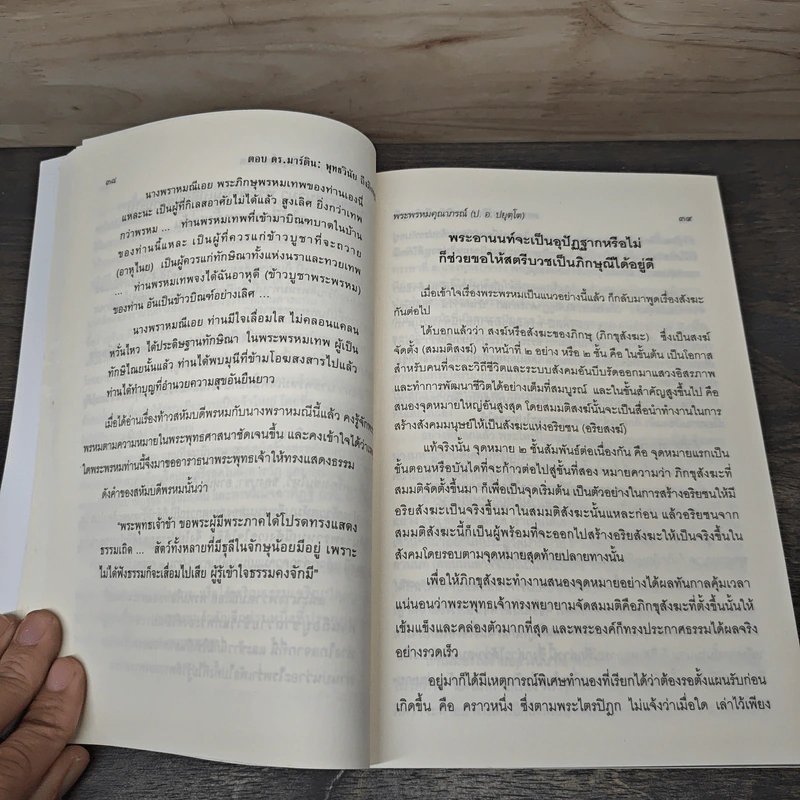 ๓๘
ตอบ ดร.มาร์ติน: พุทธวินัย ถึง
นางพราหมณีเอย พระภิกษุพรหมเทพของท่านเองนี่
แหละนะ เป็นผู้ที่กิเลสอาศัยไม่ได้แล้ว สูงเลิศ ยิ่งกว่าเทพ
กว่าพรหม … ท่านพรหมเทพที่เข้ามาบิณฑบาตในบ้าน
ของท่านนี้แหละ เป็นผู้ที่ควรแก่ข้าวบูชาที่จะถวาย
(อาหุไนย) เป็นผู้ควรแก่ทักษิณาทั้งแห่งนราและทวยเทพ
… ท่านพรหมเทพจงได้ฉันอาหุดี (ข้าวบูชาพระพรหม)
ของท่าน อันเป็นข้าวบิณฑ์อย่างเลิศ …
นางพราหมณีเอย ท่านมีใจเลื่อมใส ไม่คลอนแคลน
หวั่นไหว ได้ประดิษฐานทักษิณา ในพระพรหมเทพ ผู้เป็น
ทักษิไณยนั้นแล้ว ท่านได้พบมุนีที่ข้ามโอฆสงสารไปแล้ว
ท่านได้ทำบุญที่อำนวยความสุขอันยืนยาว
เมื่อได้อ่านเรื่องท้าวสหัมบดีพรหมกับนางพราหมณีนี้แล้ว คงรู้จักพระ
พรหมตามความหมายในพระพุทธศาสนาชัดเจนขึ้น และคงเข้าใจได้ว่า
ใดพระพรหมท่านนี้จึงมาขออาราธนาพระพุทธเจ้าให้ทรงแสดงธรรม
ดังคำของสหัมบดีพรหมนั้นว่า
“พระพุทธเจ้าข้า ขอพระผู้มีพระภาคได้โปรดทรงแสดง
ธรรมเถิด … สัตว์ทั้งหลายที่มีธุลีในจักษุน้อยมีอยู่ เพราะ
ไม่ได้ฟังธรรมก็จะเสื่อมไปเสีย ผู้รู้เข้าใจธรรมคงจักมี”
พระพรหมคุณาภรณ์ (ป. อ. ปยุตฺโต)
๓๙
พระอานนท์จะเป็นอุปัฏฐากหรือไม่
ก็ช่วยขอให้สตรีบวชเป็นภิกษุณีได้อยู่ดี
เมื่อเข้าใจเรื่องพระพรหมเป็นแนวอย่างนี้แล้ว ก็กลับมาพูดเรื่องสังฆะ
กันต่อไป
ได้บอกแล้วว่า สงฆ์หรือสังฆะของภิกษุ (ภิกขุสังฆะ) ซึ่งเป็นสงฆ์
จัดตั้ง (สมมติสงฆ์) ทำหน้าที่ ๒ อย่าง หรือ ๒ ชั้น คือ ในขั้นต้น เป็นโอกาส
สำหรับคนที่จะละวิถีชีวิตและระบบสังคมอันบีบรัดออกมาแสวงอิสรภาพ
และทำการพัฒนาชีวิตได้อย่างเต็มที่สมบูรณ์ และในขั้นสำคัญสูงขึ้นไป คือ
สนองจุดหมายใหญ่อันสูงสุด โดยสมมติสงฆ์นั้นจะเป็นสื่อนำทำงานในการ
สร้างสังคมมนุษย์ให้เป็นสังฆะแห่งอริยชน (อริยสงฆ์)
แท้จริงนั้น จุดหมาย ๒ ชั้นสัมพันธ์ต่อเนื่องกัน คือ จุดหมายแรกเป็น
ขั้นตอนหรือบันไดที่จะก้าวต่อไปสู่ขั้นที่สอง หมายความว่า ภิกขุสังฆะที่
สมมติจัดตั้งขึ้นมา ก็เพื่อเป็นจุดเริ่มต้น เป็นตัวอย่างในการสร้างอริยชนให้มี
อริยสังฆะเป็นจริงขึ้นมาในสมมติสังฆะนั้นแหละก่อน แล้วอริยชนจาก
สมมติสังฆะนี้ก็เป็นผู้พร้อมที่จะออกไปสร้างอริยสังฆะให้เป็นจริงขึ้นใน
สังคมโดยรอบตามจุดหมายสุดท้ายปลายทางนั้น
เพื่อให้ภิกขุสังฆะทำงานสนองจุดหมายอย่างได้ผลทันกาลคุ้มเวลา
แน่นอนว่าพระพุทธเจ้าทรงพยายามจัดสมมติคือภิกขุสังฆะที่ตั้งขึ้นนั้นให้
เข้มแข็งและคล่องตัวมากที่สุด และพระองค์ก็ทรงประกาศธรรมได้ผลจริง
อย่างรวดเร็ว
อยู่มาก็ได้มีเหตุการณ์พิเศษทำนองที่เรียกได้ว่าต้องรอตั้งแผนรับก่อน
เกิดขึ้น คือ คราวหนึ่ง ซึ่งตามพระไตรปิฎก ไม่แจ้งว่าเมื่อใด เล่าไว้เพียง